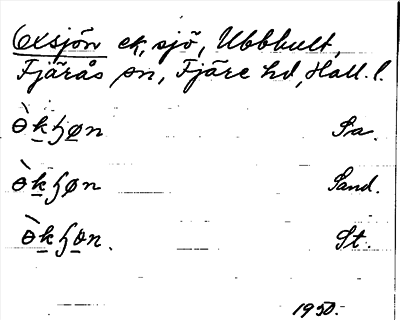 Oxsjön ek, sjö, Ubbhult,
Fjärås sn, Fjäre hd, Hall. l.
ò̵kʃøn Sa.
ò̵kʃøn Sand.
ò̵kʃøn. St.
1950.